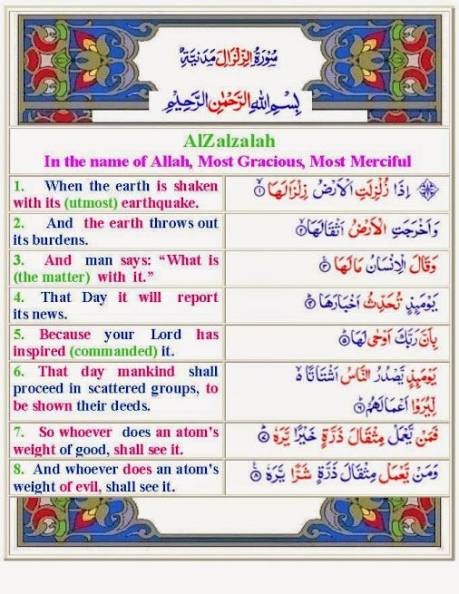 سُوْرَةُ الزِّلْزَالِ مَدَنِيَّةٌ
بِسْمِ اللهِ الرَّحْمٰنِ الرَّحِيْمِ
AlZalzalah
In the name of Allah, Most Gracious, Most Merciful
1. When the earth is shaken
with its (utmost) earthquake.
اِذَا زُلْزِلَتِ الْاَرْضُ زِلْزَالَهَا ۱
2. And the earth throws out
its burdens.
وَاَخْرَجَتِ الْاَرْضُ اَثْقَالَهَا ۲
3. And man says: “What is
(the matter) with it.”
وَقَالَ الْاِنْسَانُ مَا لَهَا ۳
4. That Day it will report
its news.
يَوْمَئِذٍ تُحَدِّثُ اَخْبَارَهَا ۴
5. Because your Lord has
inspired (commanded) it.
بِاَنَّ رَبَّكَ اَوْحٰى لَهَا ۵
6. That day mankind shall
proceed in scattered groups, to
be shown their deeds.
يَوْمَئِذٍ يَّصْدُرُ النَّاسُ اَشْتَاتًا ۵
لِّيُرَوْا اَعْمَالَهُمْ ۶
7. So whoever does an atom’s
weight of good, shall see it.
فَمَنْ يَّعْمَلْ مِثْقَالَ ذَرَّةٍ خَيْرًا يَّرَهٗ ۷
8. And whoever does an atom’s
weight of evil, shall see it.
وَمَنْ يَّعْمَلْ مِثْقَالَ ذَرَّةٍ شَرًّا يَّرَهٗ ۸